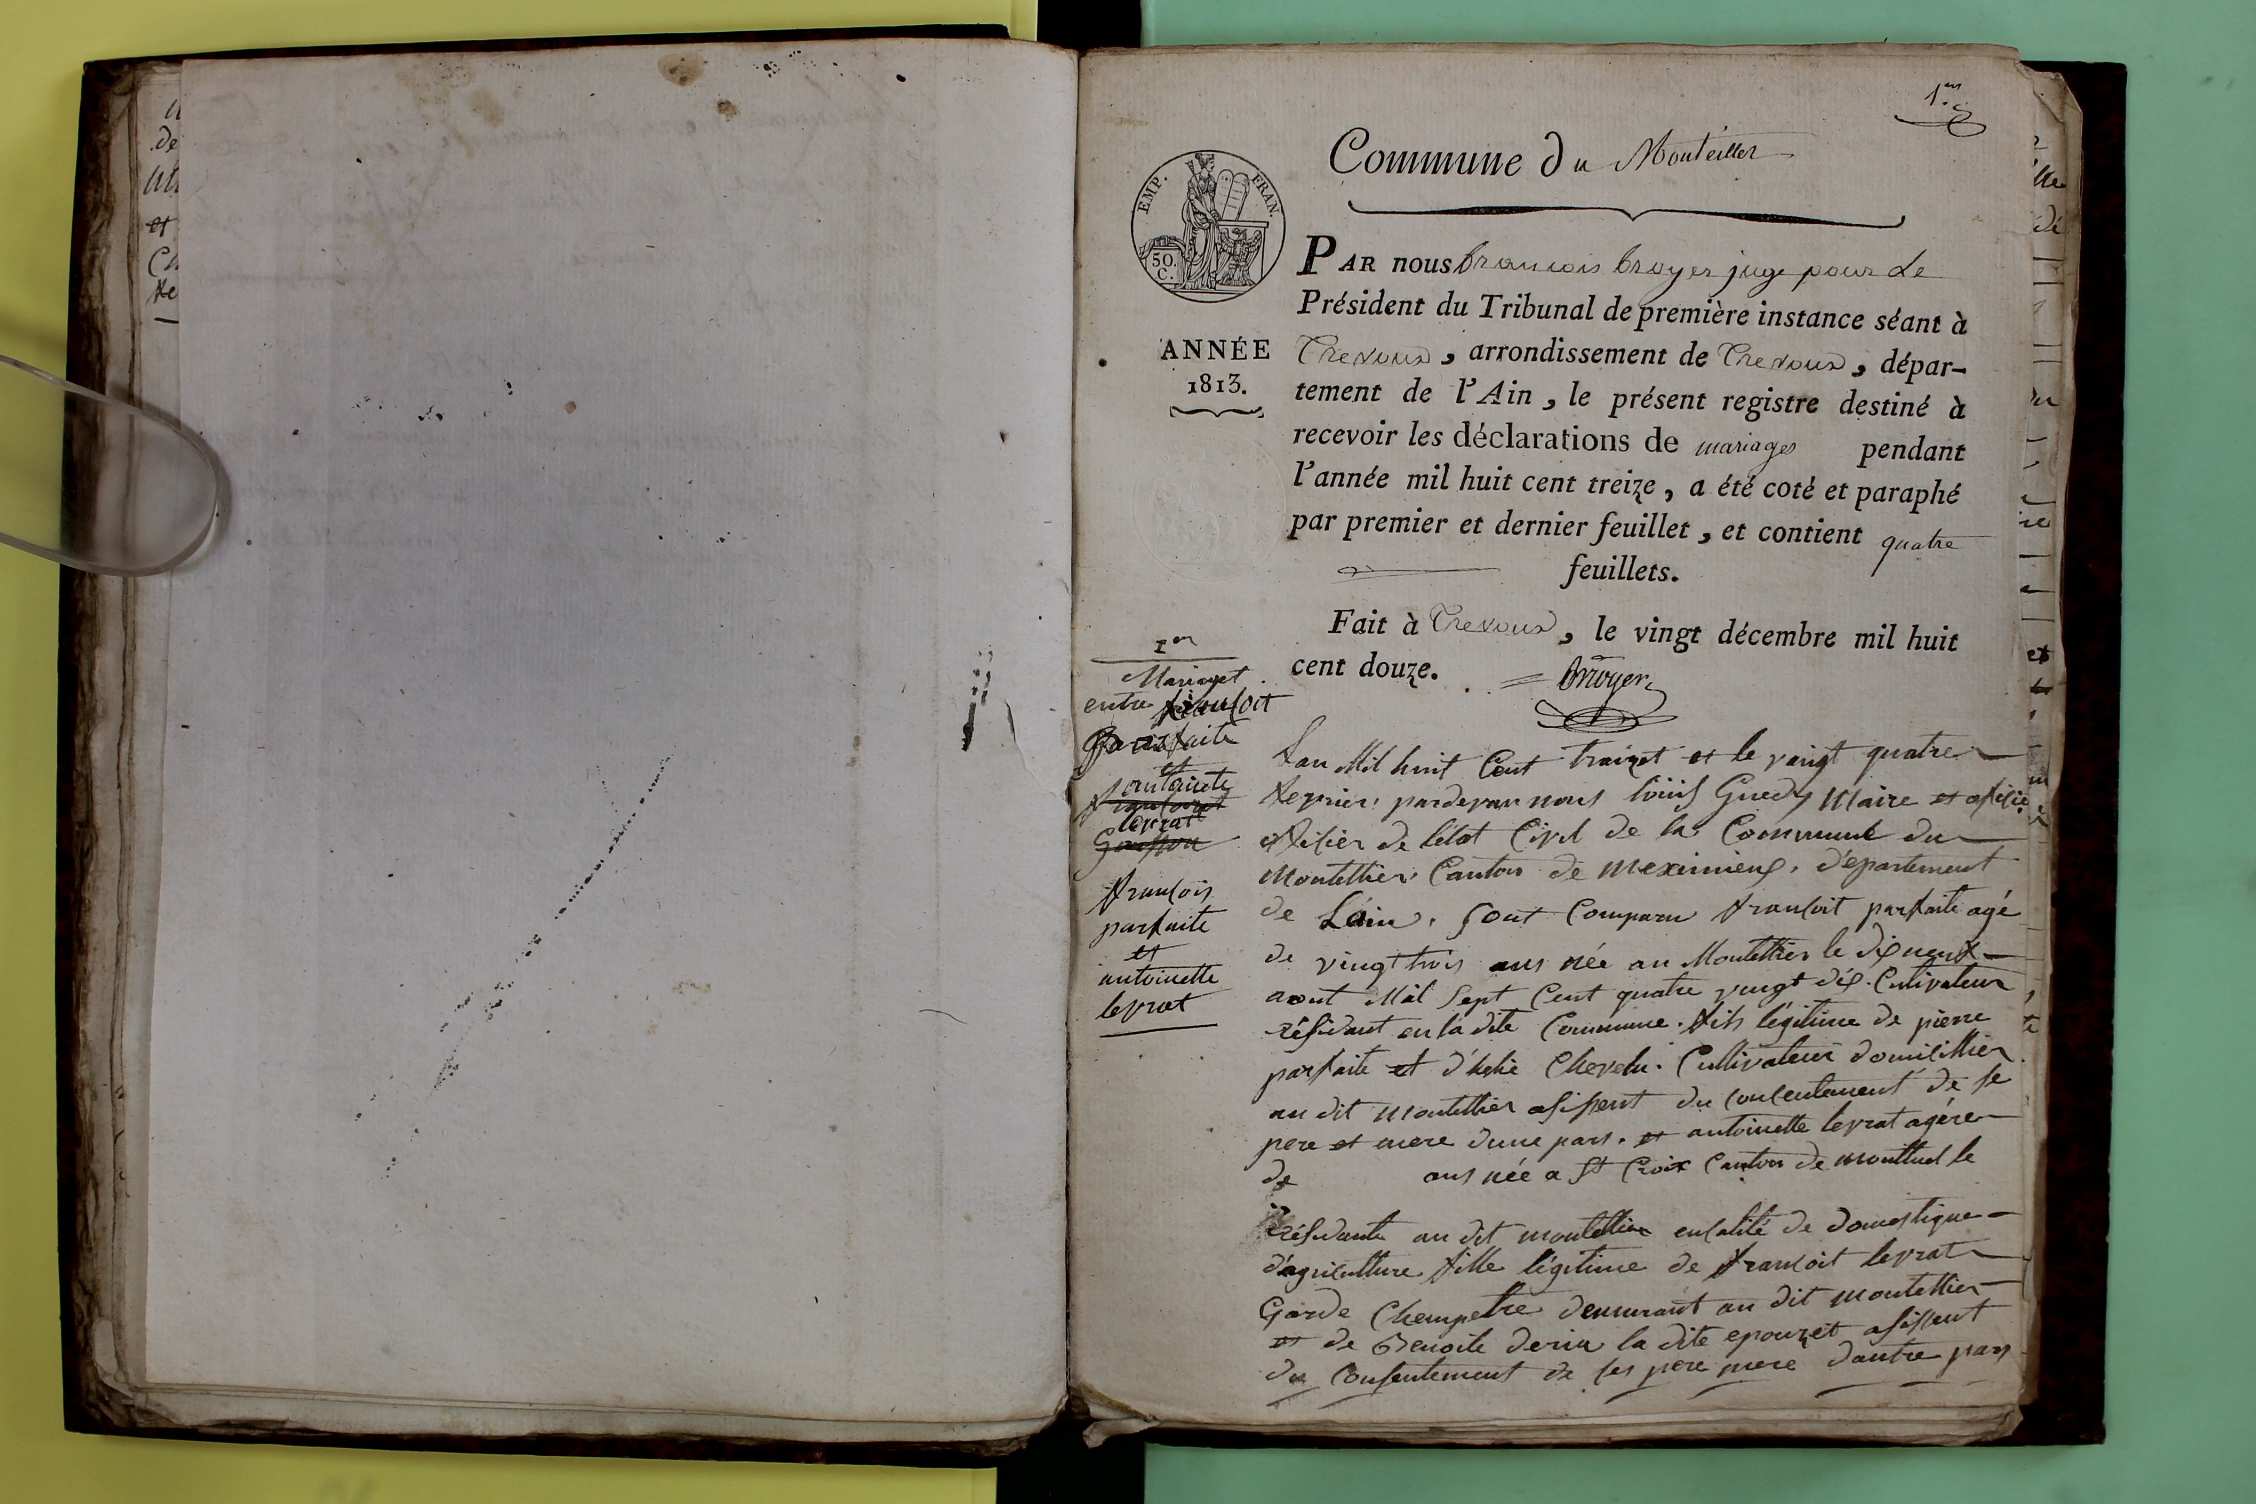 1.er
Commune du Monteiller
EMP. FRAN.
50. C.
ANNÉE
1813.
PAR nous francois broyer juge pour le
Président du Tribunal de première instance séant à
Trevoux, arrondissement de Trevoux, dépar-
tement de l'Ain, le présent registre destiné à
recevoir les déclarations de mariages pendant
l'année mil huit cent treize, a été coté et paraphé
par premier et dernier feuillet, et contient quatre
feuillets.
Fait à Trevoux, le vingt décembre mil huit
cent douze.
Broyer
1er
Mariaget
entre françoit
parfaite
et
antoinete
levrat
françois
parfaite
et
antoinette
levrat
Lan Mil huit Cent traizet et le vaingt quatre
fevrier, pardevan nous louis Guedy Maire et ofície
ofícier de létat Civil de la Commune du
Montellier Canton de meximieux, département
de Láin, sont Comparu françoit parfaite agé
de vingt trois ans née au Montellier le dix neuf
aout Mil sept Cent quatre vingt dix. Cultivateur
résidant en la dite Commune. fils légitime de pierre
parfaite et d'hélie Chevelu. Cultivateur domicillier
au dit montellier asissent du Consentement de se
pere et mere dune part. et antoinette levrat agére
de ans née a St Croix Canton de montluel le
résidante au dit montellier en calité de domestique
d'agriculture fille légitime de françoit levrat
Garde Champetre demurant au dit montellier
et de Benoite derin la dite epouzet asissent
du Consentement de ses pere mere dautre part